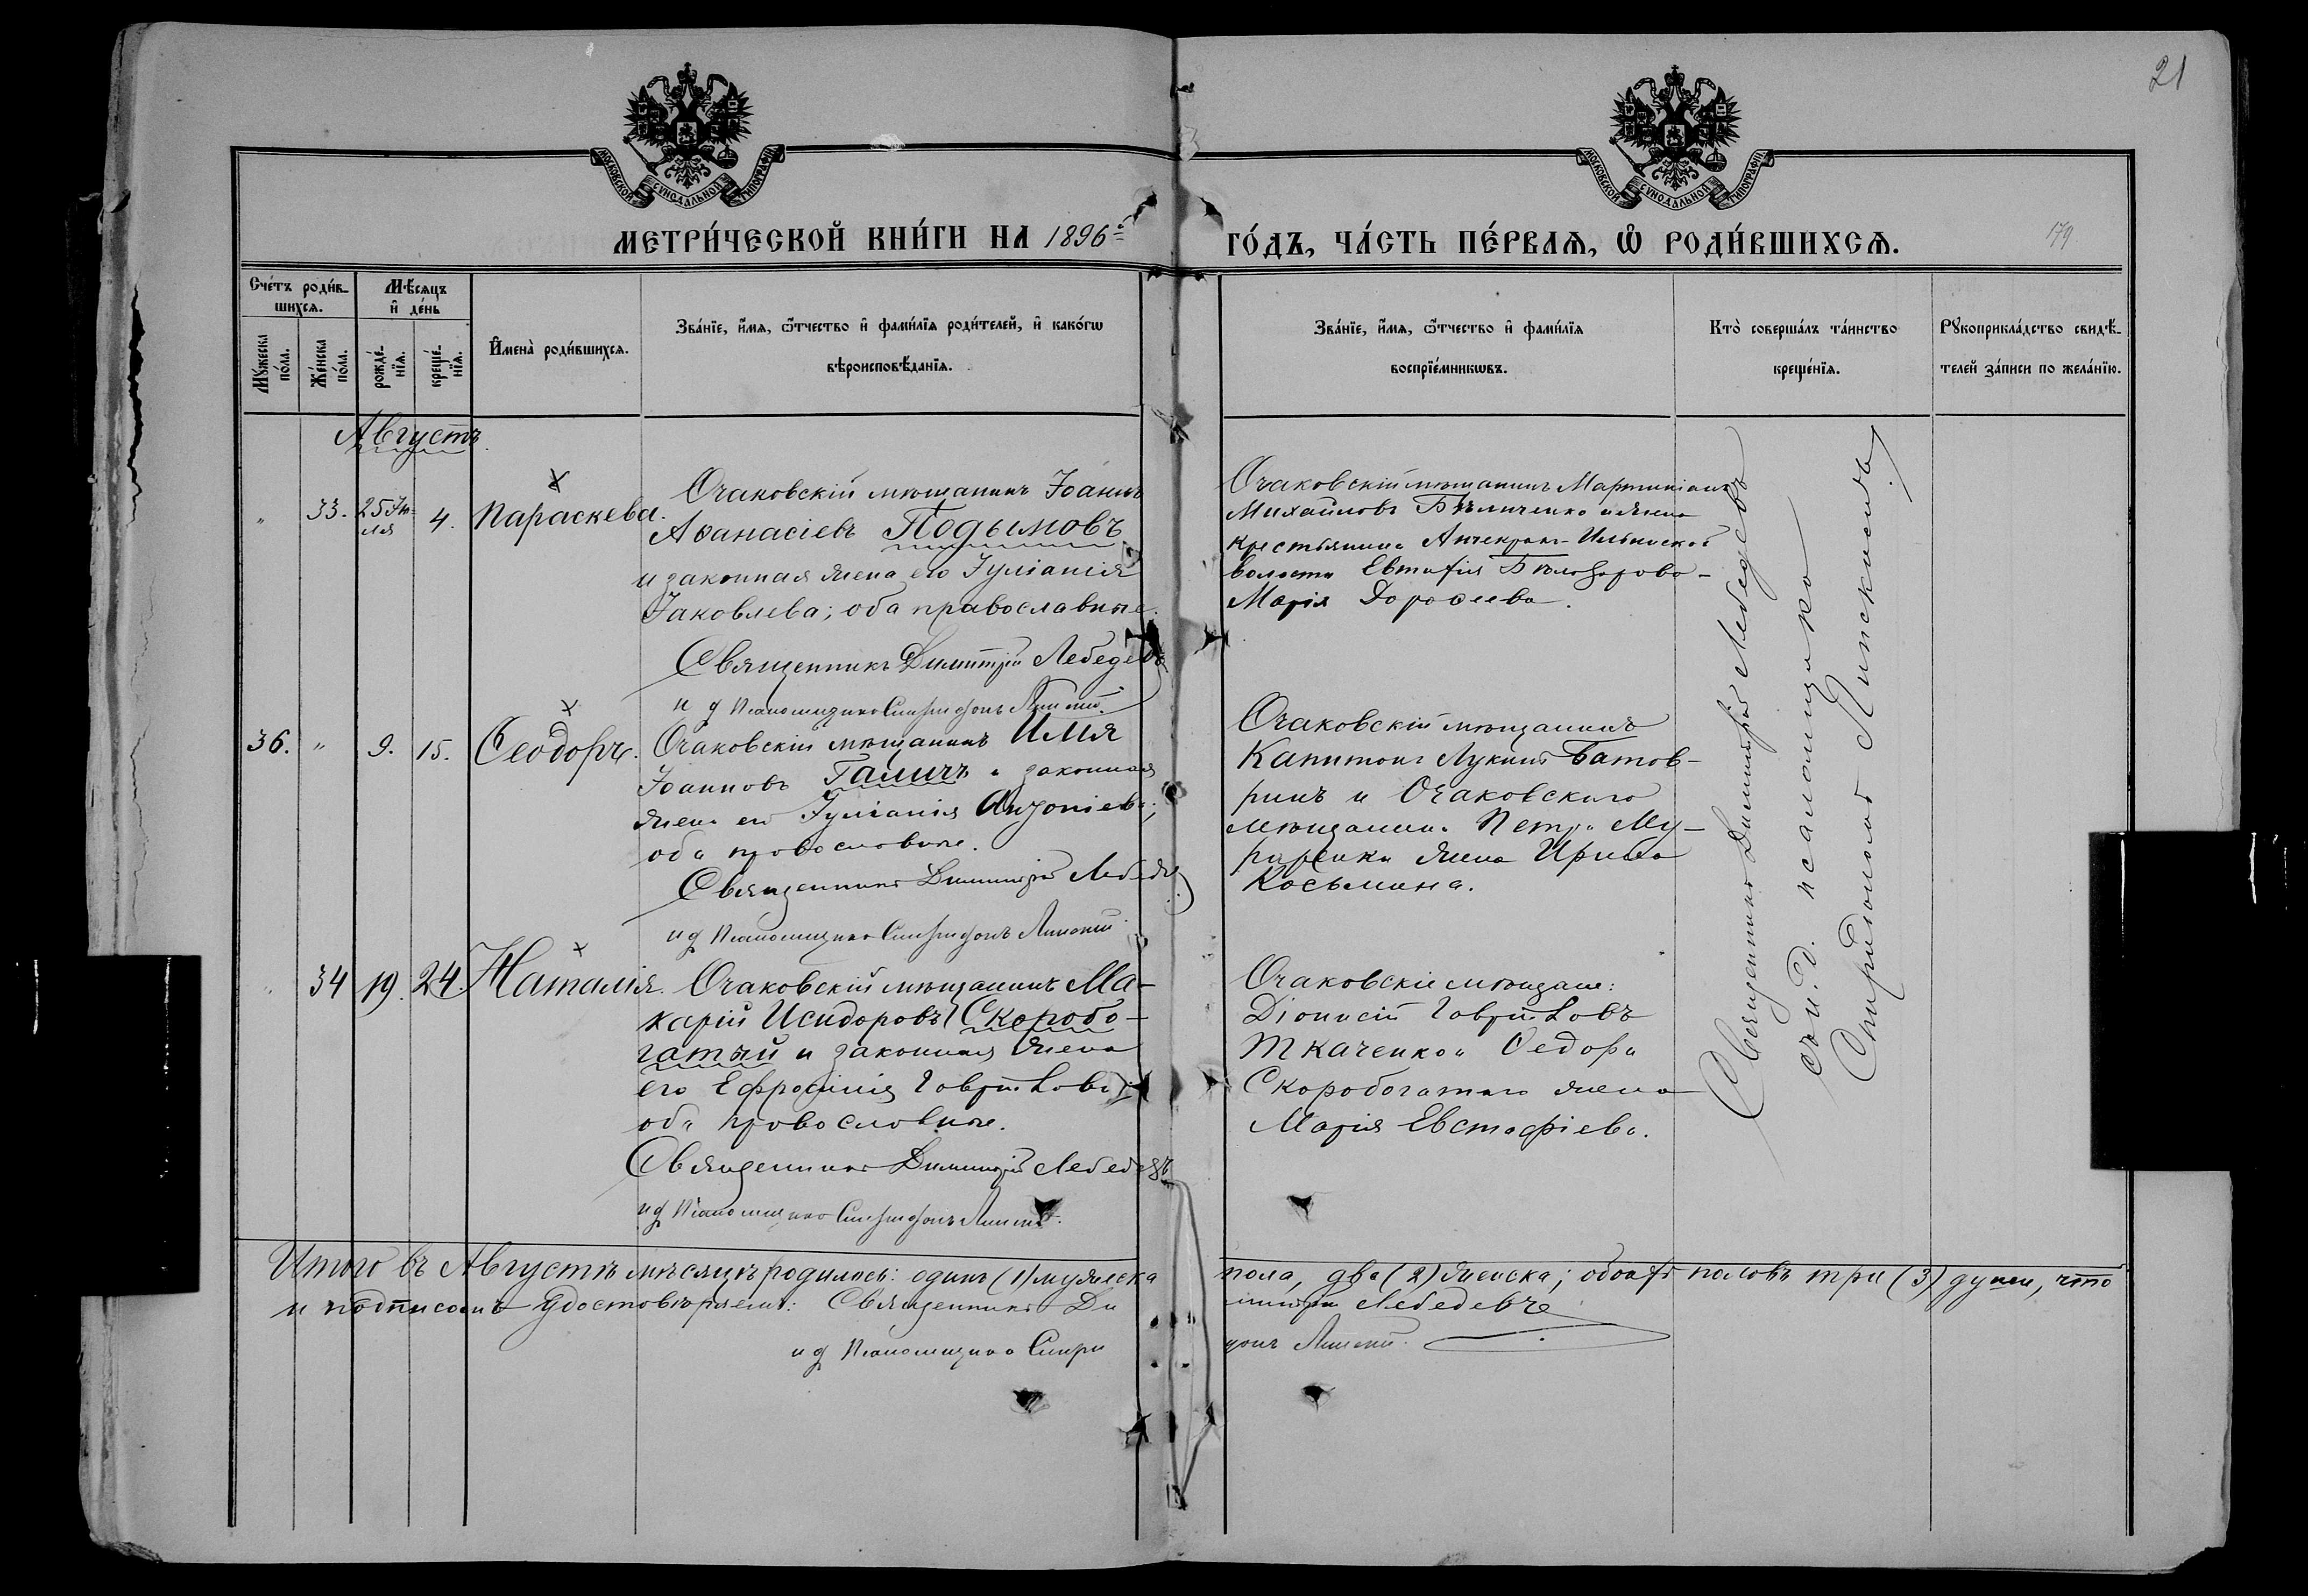 21
МОСКОВСКОЙ СѴНОДАЛЬНОЙ ТИПОГРАФІИ
МОСКОВСКОЙ СѴНОДАЛЬНОЙ ТИПОГРАФІИ
МЕТРИ́ЧЕСКОЙ КНИ́ГИ НА 1896й ГО́ДЪ, ЧА́СТЬ ПЕ́РВАЯ, Ѡ РОДИ́ВШИХСЯ.
179
Сче́тъ роди́в-
шихся.
Му́жеска по́ла.
Же́нска по́ла.
Мѣ́сяцъ
и де́нь
рожде́-
нїя.
креще́-
нїя.
Имена̀ роди́вшихся.
Зва́нїе, и́мя, ѻ́тчество и фами́лїя роди́телей, и како́гѡ
вѣроисповѣ́данїя.
Зва́нїе, и́мя, ѻ́тчество и фами́лїя
воспрїе́мникѡвъ.
Кто̀ соверша́лъ та́инство
креще́нїя.
Рꙋкоприкла́дство свидѣ́-
телей за́писи по жела́нїю.
Августъ
" 33. 25 Іюля 4. Параскева.
Очаковскій мѣщанинъ Іоаннъ
Аѳанасіевъ Подымовъ
и законная жена его Іуліанія
Іаковлева; оба православные.
Священникъ Димитрій Лебедевъ
и д Псаломщика Спиридонъ Липскій.
Очаковскій мѣщанинъ Мартиніанъ
Михайловъ Бѣличенко и жена
крестьянина Анчекрако-Ильинской
волости Евтифія Бѣлозорова-
Марія Дороѳеева.
36. " 9. 15. Ѳеодоръ.
Очаковскій мѣщанинъ Илія
Іоанновъ Галичъ и законная
жена его Іуліанія Антоніева;
оба православные.
Священникъ Димитрій Лебедевъ
и д Псаломщика Спиридонъ Липскій
Очаковскій мѣщанинъ
Капитонъ Лукинъ Батов-
ринъ и Очаковскаго
мѣщанина Петра Му-
жена Ирина
Косьмина.
" 34 19. 24. Наталія.
Очаковскій мѣщанинъ Ма-
карій Исидоровъ Скоробо-
гатый и законная жена
его Ефросинія Гавриилова;
оба православные.
Священникъ Димитрій Лебедевъ
и д Псаломщика Спиридонъ Липскій.
Очаковскіе мѣщане:
Діонисій Гавриловъ
Ткаченко и Ѳедора
Скоробогатаго жена
Марія Евстафіева.
Священникъ Димитрій Лебедевъ
и. д. псаломщика
Спиридонъ Липскій
Итого въ Августѣ мѣсяцѣ родились: одинъ (1) мужеска пола, два (2) женска; обоего половъ три (3) души, что
и подписомъ удостовѣряемъ: Священникъ Димитрій Лебедевъ
и д Псаломщика Спиридонъ Липскій.